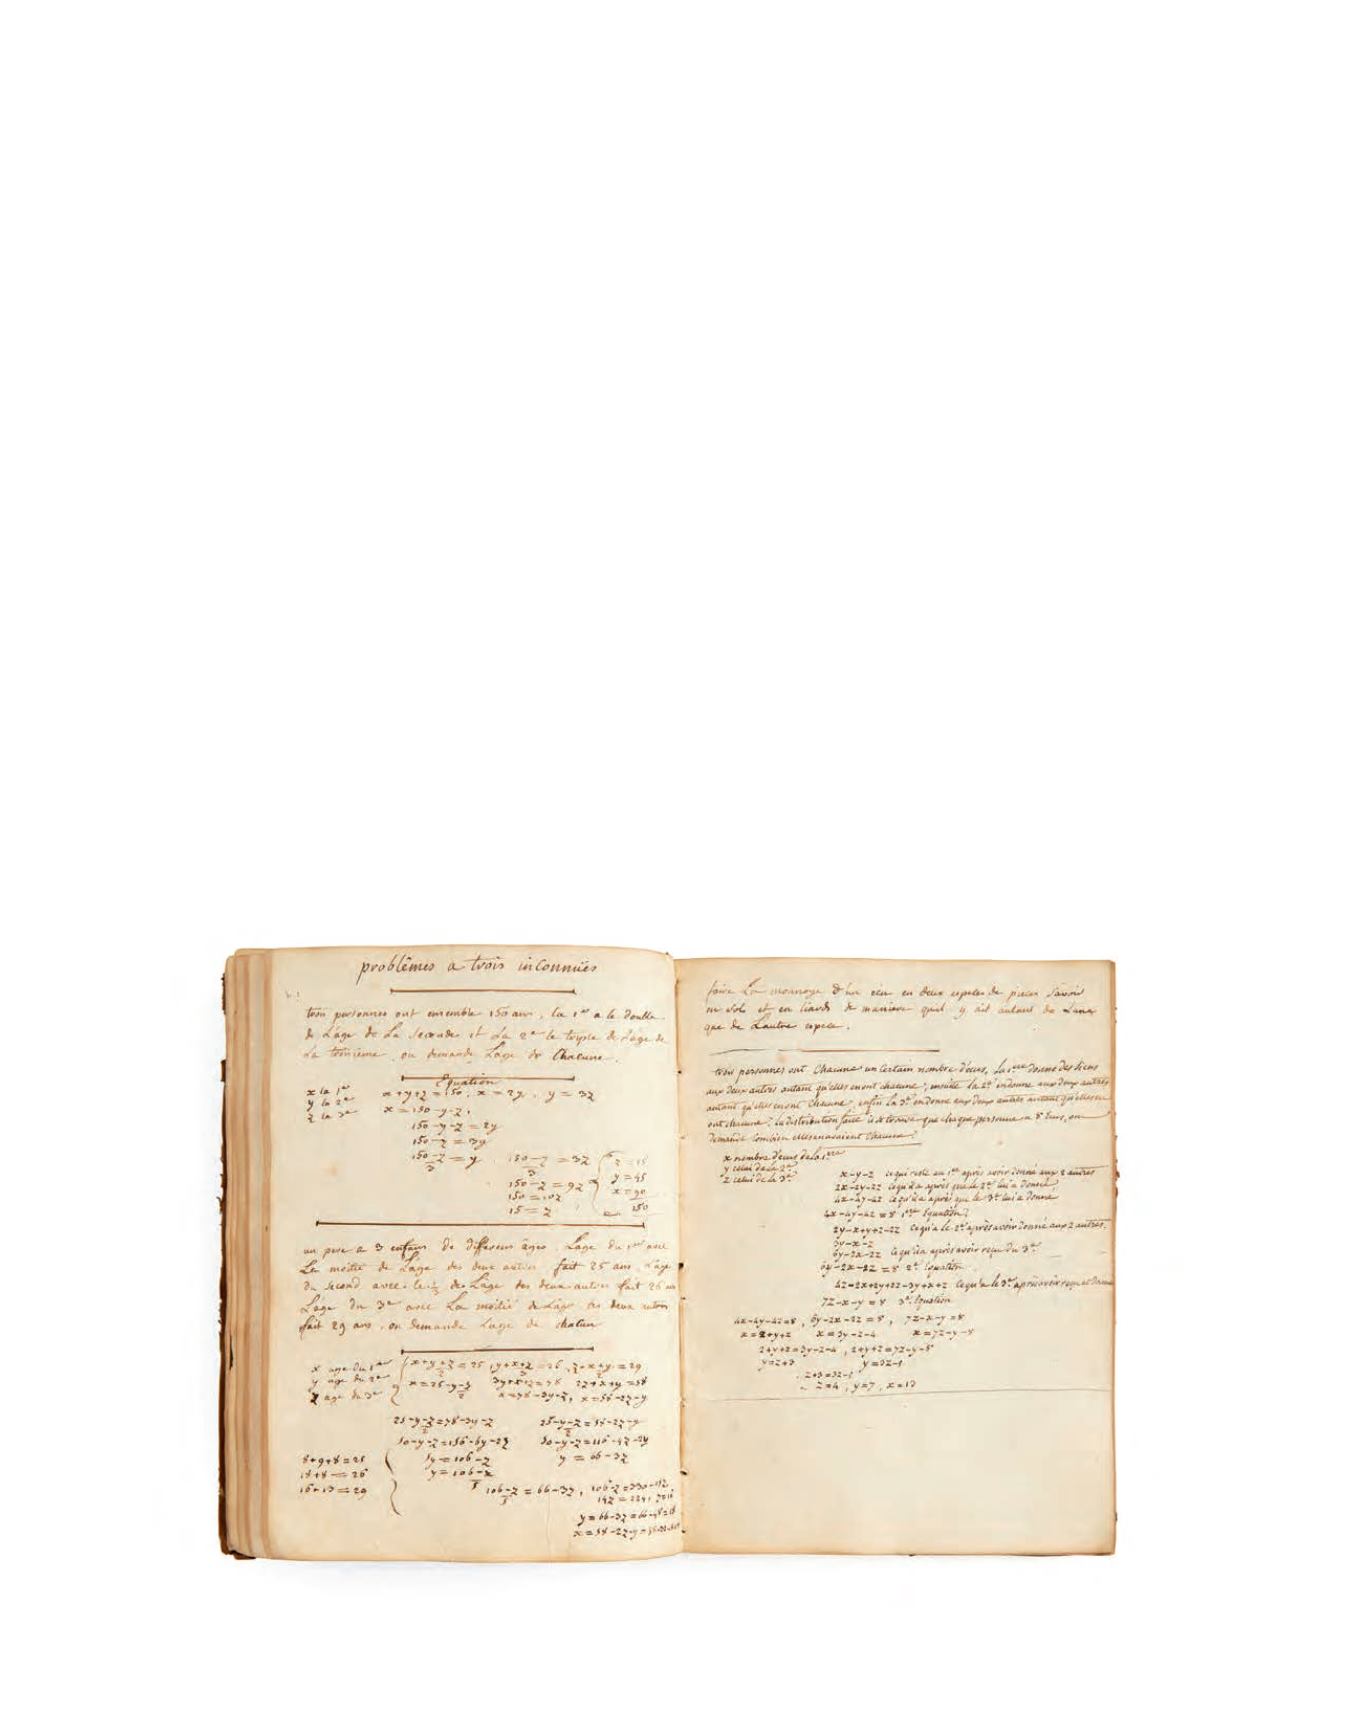 problêmes a trois inconnües
trois personnes ont ensemble 150 ans, la 1ere a le double
de L'âge de La seconde et La 2e le triple de L'age de
La troisieme, on demande L'age de Chacune.
Equation
x la 1ere
y la 2e
z la 3e
x+y+z=150, x=2y, y=3z
x=150-y-z,
150-y-z=2y
150-z=3y
150-z/3=y, 150-z/3=3z
150-z=9z
150=10z
15=z
z=15
y=45
x=90
150
un pere a 3 enfans de differens âges, L'age du 1er avec
La moitié de L'âge des deux autres fait 25 ans, L'âge
du second avec le 1/3 de L'age des deux autres fait 26 ans
L'âge du 3e avec La moitié de L'age des deux autres
fait 29 ans, on demande L'age de chacun
x age du 1er
y age du 2e
z age du 3e
x+y+z/2=25, y+x+z/3=26, z+x+y/2=29
x=25-y-z/2, 3y+x+z=78, 2z+x+y=58
x=78-3y-z, x=58-2z-y
25-y-z/2=78-3y-z
25-y-z/2=58-2z-y
50-y-z=156-6y-2z
50-y-z=116-4z-2y
5y=106-z
y=66-3z
y=106-z/5
106-z/5=66-3z, 106-z=330-15z
14z=224, z=16
y=66-3z=66-48=18
x=58-2z-y=58-32-18
8+9+8=25
18+8=26
16+13=29
faire La monnoye d'un ecu en deux especes de pieces savoir
en sols et en liards de maniere quil y ait autant de L'une
que de L'autre espece.
trois personnes ont Chacune un Certain nombre d'ecus, La 1ere donne des siens
aux deux autres autant qu'elles en ont chacune, ensuite la 2e en donne aux deux autres
autant qu'elles en ont Chacune, enfin la 3e en donne aux deux autres autant qu'elles en
ont chacune; la distribution faite il se trouve que chaque personne a 8 Ecus, on
demande Combien elles en avaient Chacune?
x nombre d'ecus de la 1ere
y celui de la 2e
z celui de la 3e
x-y-z ce qui reste au 1er après avoir donné aux 2 autres
2x-2y-2z ce qu'il a après que le 2e lui a donné
4x-4y-4z ce qu'il a après que le 3e lui a donné
4x-4y-4z=8 1ere Equation
2y-x+y+z-2z ce qu'a le 2e après avoir donné aux 2 autres
3y-x-z
6y-2x-2z ce qu'il a après avoir reçu du 3e
6y-2x-2z=8 2e Equation
4z-2x+2y+2z-3y+x+z ce qu'a le 3e après avoir reçu et donné
7z-x-y=8 3e Equation
4x-4y-4z=8, 6y-2x-2z=8, 7z-x-y=8
x=2+y+z x=3y-z-4 x=7z-y-8
2+y+z=3y-z-4, 2+y+z=7z-y-8
y=z+3 y=3z-5
z+3=3z-5
z=4, y=7, x=13